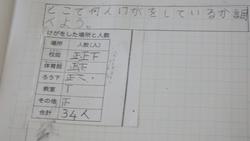 どこで何人けがをしているか調
べよう。
けがをした場所と人数
場所 人数(人)
校庭 正正下
体育館 正下
ろう下
教室
その他 正
合計 34人